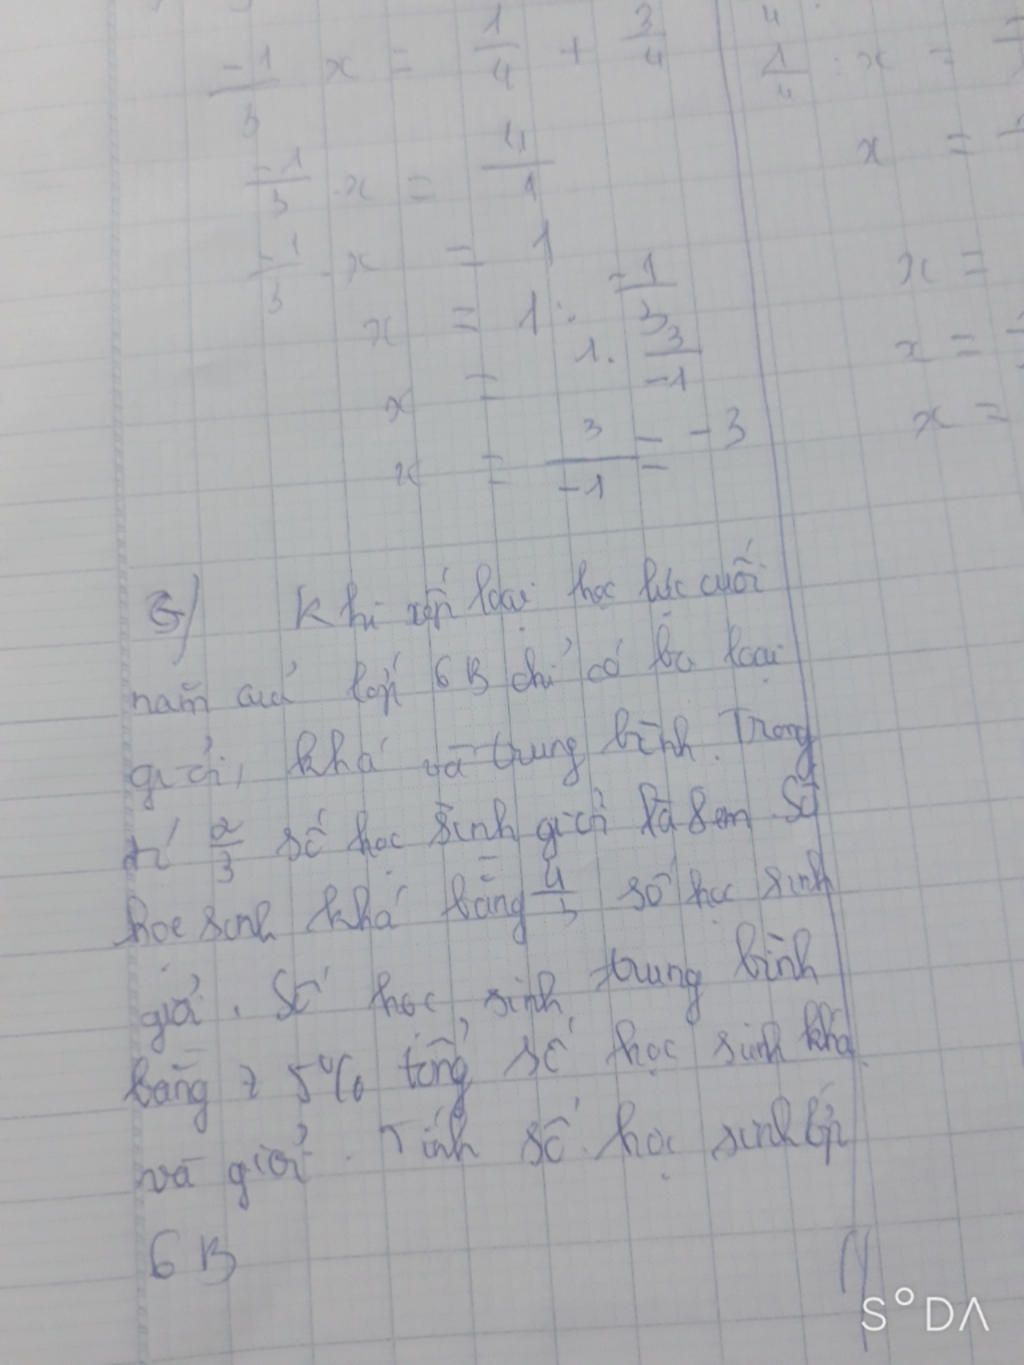 -1/3 x = 1/4 + 3/4
-1/3 . x = 4/1
-1/3 . x = 1
x = 1 : -1/3
x = 1 . 3/-1
x = 3/-1 = -3
4
1/4 : x =
x =
x =
x =
x =
G) Khi xếp loại học lực cuối
năm cuả lớp 6B chỉ có ba loại
giỏi, khá và trung bình. Trong
2/3 số học sinh giỏi là 8 em. Số
học sinh khá bằng 4/3 số học sinh
giỏi. Số học sinh trung bình
bằng 25% tổng số học sinh khá
và giỏi. Tính số học sinh lớp
6B
SODA